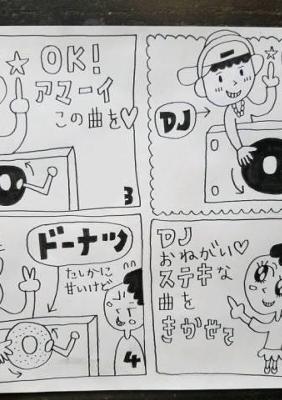 DJ
DJ
おねがい♡
ステキな
曲を
きかせて
OK!
アマーイ
この曲を♡
3
ドーナツ
たしかに
甘いけど
4